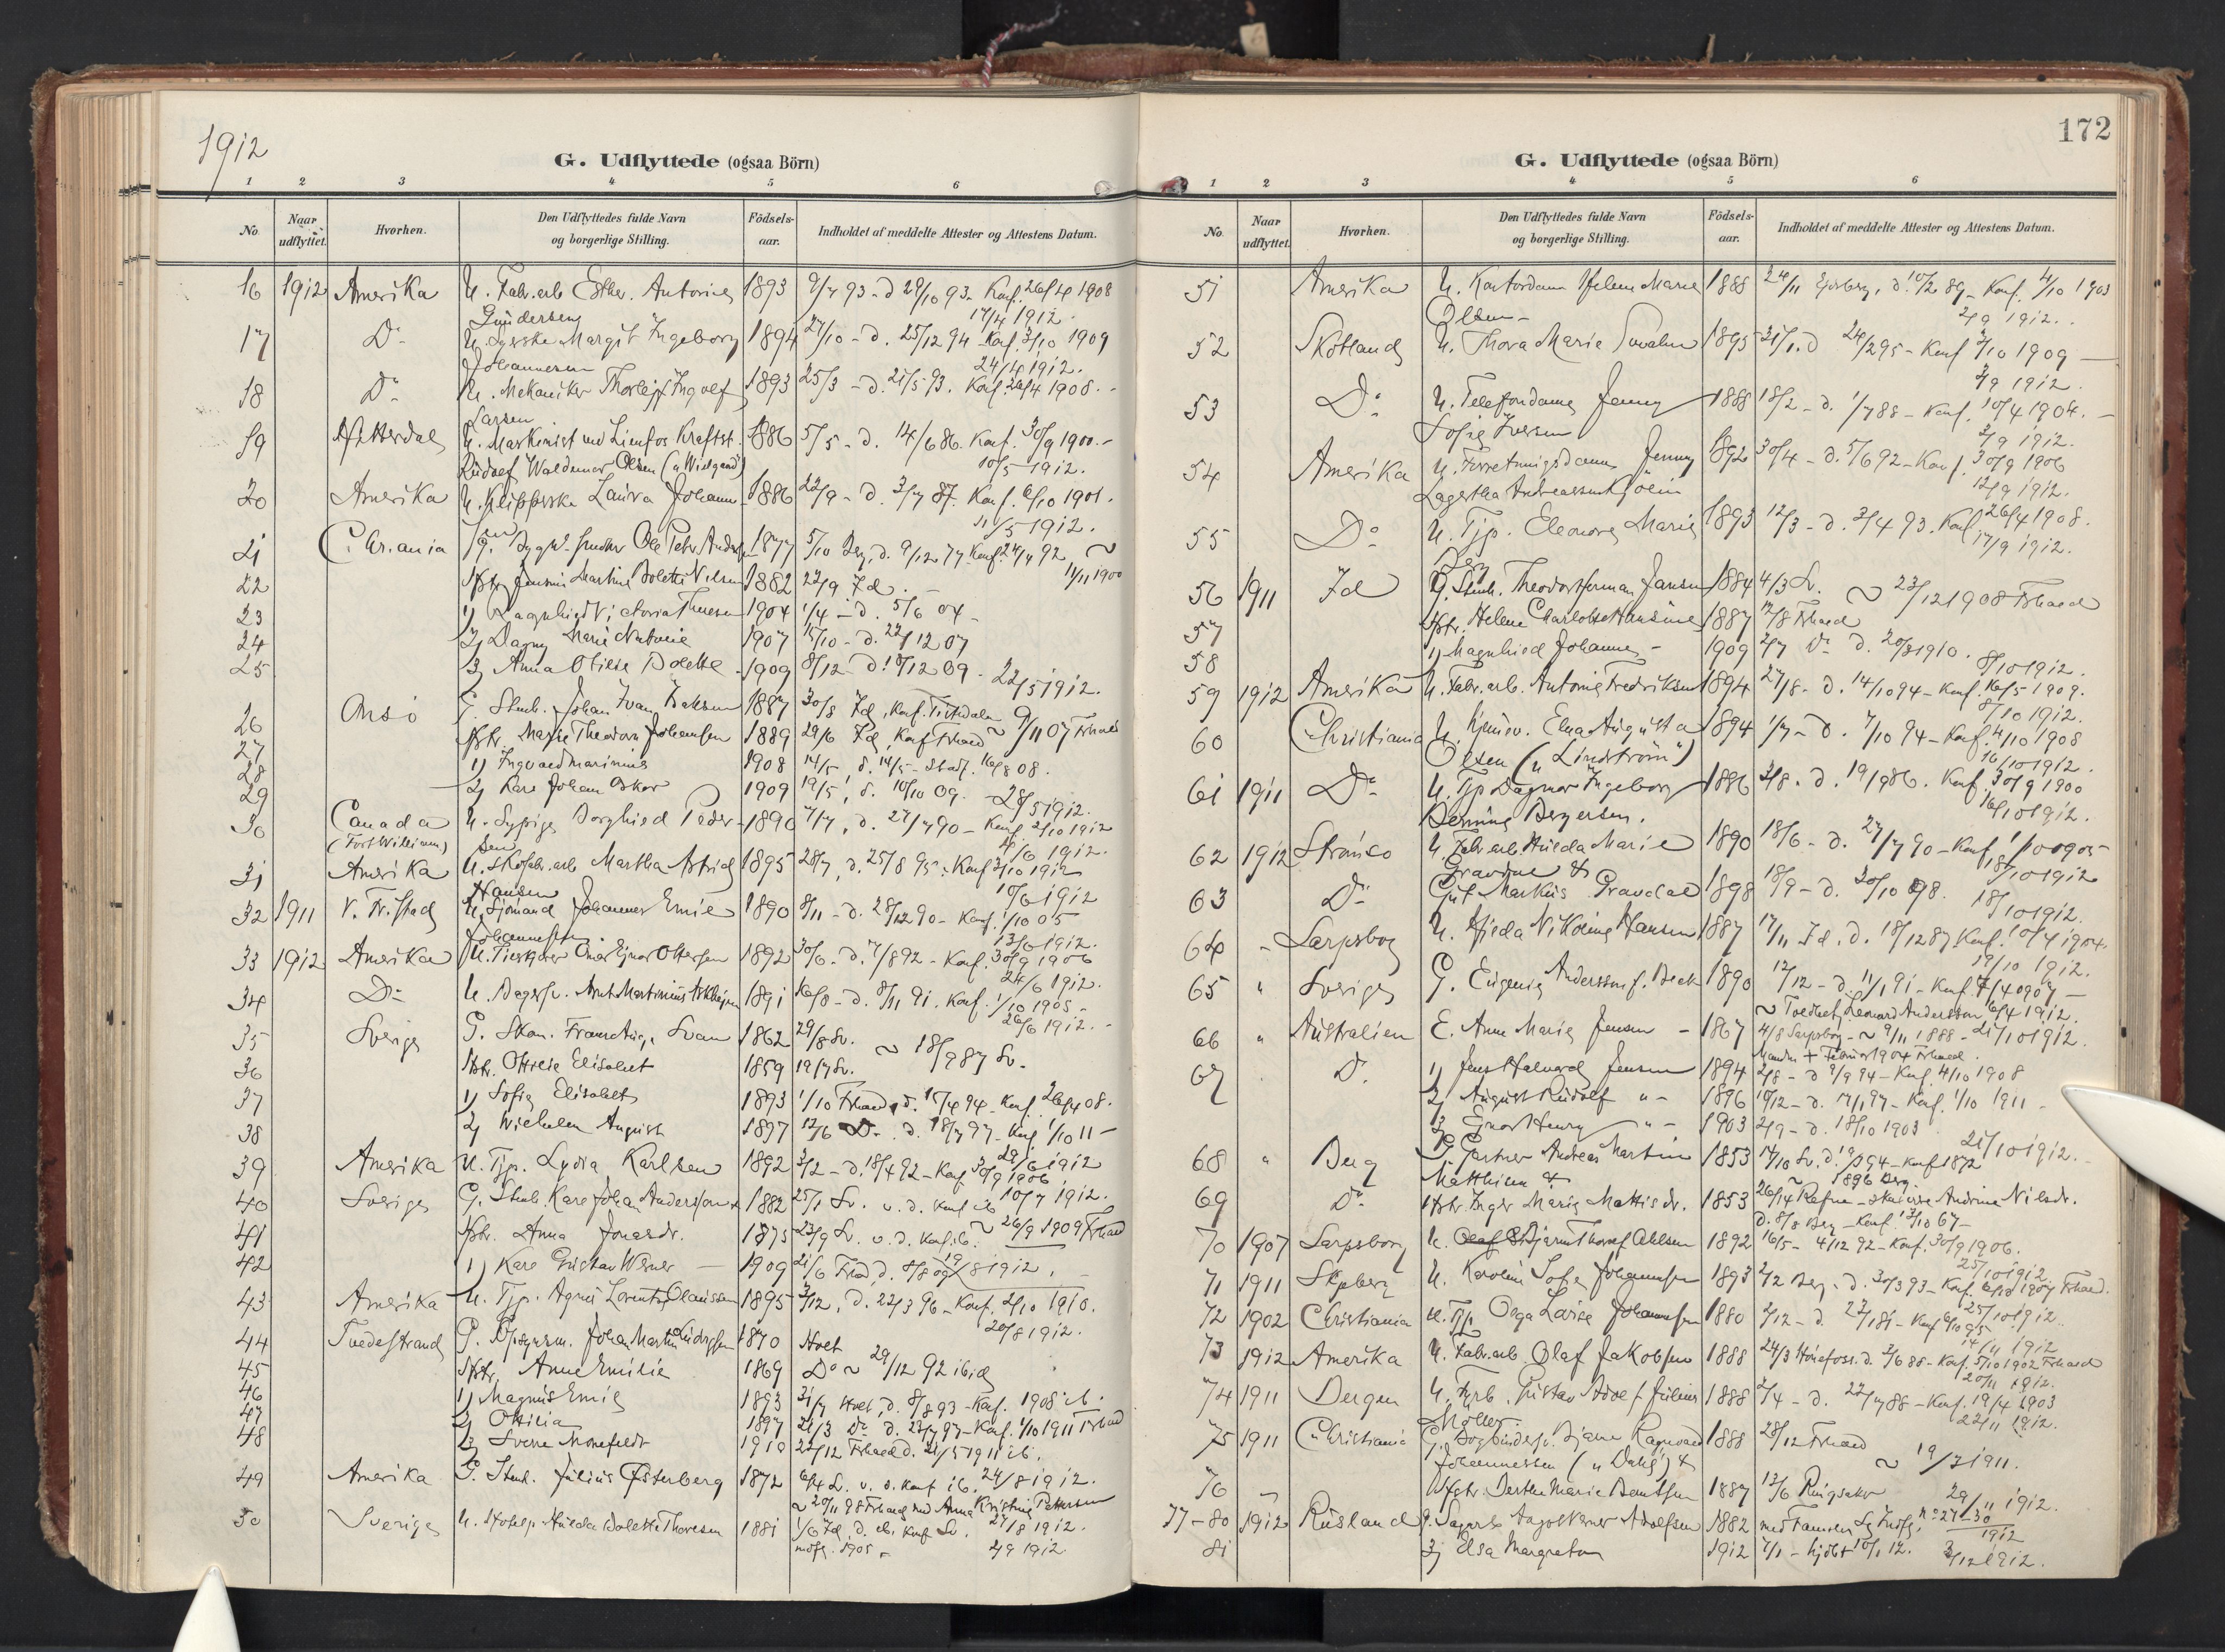 1912
G. Udflyttede (ogsaa Börn)
1 2 3 4 5 6
No. Naar udflyttet. Hvorhen. Den Udflyttedes fulde Navn og borgerlige Stilling. Födselsaar. Indholdet af meddelte Attester og Attestens Datum.
16 1912 Amerika U. Fabr.arb Esther Antonie 1893 9/7 93 - d 29/10 93 - Konf. 26/4 1908
Gundersen 17/4 1912.
17 Do U. Syerske Margit Ingeborg 1894 27/10 - d. 25/12 94 - Konf. 3/10 1909
Johannesen 24/4 1912.
18 Do U. Mekaniker Thorleif Ingolf 1893 25/3 - d. 21/5 93. Konf. 26/4 1908.
Larsen
19 Hitterdal U. Maskinist ved Lienfos Kraftst. 1886 5/5 - d. 14/6 86. Konf. 30/9 1900. -
Rudolf Waldemar Olsen 10/5 1912.
20 Amerika U. Klipperske Laura Johann 1886 22/9 - d. 3/7 87. Konf. 6/10 1901.
sen 11/5 1912.
21 Chr.ania Ole Petr. 1877 5/10 Berg, d. 9/12 77 Konf. 92 ~
11/11 1900
22 Hstr. Jensine Martine Bolette Nilsen 1882 22/9 Id. -
23 1) Ragnhild Victoria Theresen 1904 1/4 - d. 5/6 04 -
24 2) Dagny Marie Natonie 1907 15/10 - d. 22/12 07
25 3) Anna Otilie Bolette 1909 8/12 - d. 12 09 - 22/5 1912.
26 Onsö G. Stenh. Johan Ivan 1887 30/8 Id, Konf. Tistedalen ~ 9/11 07 Frhald
27 Hstr. Marie Theodora Johansen 1889 29/6 Id, Konf Frhald
28 1) Ingvald Marinius 1908 14/5 08.
29 2) Kare Johan Oskar 1909 19/5, d. 10/10 09. 28/5 1912.
30 Canada U. Sypige Borghild Peder 1890 7/7, d. 27/7 90 - Konf 2/10 1912
(Fort William) sen 4/6 1912.
31 Amerika U. Skofabr.arb Martha Astrid 1895 28/7, d. 25/8 95 - Konf 3/10 1912
Hansen 10/6 1912
32 1911 V. Fr.stad U. Sjömand Johannes Emil 1890 8/11 - d. 28/12 90 - Konf. 1/10 05
Johannessen 13/6 1912.
33 1912 Amerika U. Einar Ottersen 1892 30/6 - d. 7/8 92 - Konf. 30/9 1906
24/6 1912.
34 Do U. Bagersv. Arnt Martinius 1891 16/8 - d. 8/11 91. Konf. 1/10 1905 -
26/6 1912. -
35 Sverige G. Skom. Frans Aug. Svan 1862 29/8 Sv. ~ 18/9 87 Sv.
36 Hstr. Ottilie Elisabet 1859 19/7 Sv.
37 1) Sofie Elisabet 1893 1/10 Frhald, d. 15/4 94 - Konf. 26/4 08.
38 2) Wilhelm August 1897 12/6 Do. d. 18/7 97 - Konf 1/10 11 -
29/6 1912
39 Amerika U. Tjp. Lydia Karlsen 1892 3/2 - d. 18/4 92 - Konf 30/9 1906
10/7 1912.
40 Sverige G. Stenh. Karl Johan Andersson 1882 25/1 Sv. v. d. Konf ib
41 Hstr. Anna Jonasdr. 1875 23/9 Sv. v. d. Konf. ib. ~ 26/9 1909 Frhald
42 1) Kare Gustav Werner 1909 21/6 Frhald, d. 8/8 09 19/8 1912.
43 Amerika U. Tjp. Agnes Lorentze Claussen 1895 3/12, d. 22/3 96 - Konf. 2/10 1910.
20/8 1912.
44 Tvedestrand G. Johan Martin Ludvigsen 1870 Holt
45 Hstr. Anne Emilie 1869 Do ~ 29/12 92 ibid
46 1) Magnus Emil 1893 31/7 Holt, d. 8/8 93 - Konf. 1908 ib
47 2) Ottilia 1897 21/3 Do d. 97 - Konf. 1/10 1911 Frhald
48 3) Sverre Monefeldt 1910 22/12 Frhald d. 21/5 1911 ib.
49 Amerika G. Stenh. Julius Österberg 1872 6/4 Sv. v. d. Konf ib. 24/8 1912.
~ 20/11 98 Frhald med Anna Kristine Pettersen
50 Sverige U. Hushp. Hulda Bolette Thoresen 1881 1/6 Id, d. ib. Konf Sv. 27/8 1912.
indfl. 1905 - 2/9 1912.
172
G. Udflyttede (ogsaa Börn)
1 2 3 4 5 6
No. Naar udflyttet. Hvorhen. Den Udflyttedes fulde Navn og borgerlige Stilling. Födselsaar. Indholdet af meddelte Attester og Attestens Datum.
51 Amerika U. Kontordame Helene Marie 1888 24/11 d. 10/2 89 - Konf. 4/10 1903
Olsen - 2/9 1912.
52 Skotland U. Thora Marie 1895 31/1. d 24/2 95 - Konf 3/10 1909 -
3/9 1912.
53 Do U. Telefondame Jenny 1888 18/2 - d. 1/7 88 - Konf. 10/4 1904. -
Sofie Iversen 3/9 1912.
54 Amerika U. Forretningsdame Jenny 1892 30/4 - d. 5/6 92 - Konf. 30/9 1906
Lagertha Andreassen Kjölin 12/9 1912.
55 Do U. Tjp. Eleonora Marie 1893 12/3 - d. 3/4 93. Konf 26/4 1908.
Berg 17/9 1912.
56 1911 Id G. Stenh. Theodor Herman Jansen 1884 4/3 Sv. ~ 23/12 1908 Frhald
57 Hstr. Helene Charlotte Hansine 1887 12/8 Frhald
58 1) Magnhild Johanne - 1909 2/7 Do d. 20/3 1910. 8/10 1912.
59 1912 Amerika U. Fabr.arb. Antonie Fredriksen 1894 27/8 - d. 14/10 94 - Konf. 16/5 1909.
8/10 1912.
60 Christiania U. Elna Augusta 1894 1/7 - d. 7/10 94 - Konf. 4/10 1908
Olsen ("Lindström") 16/10 1912.
61 1911 Do U. Tjp Dagmar Ingeborg 1886 3/8 - d. 19/9 86. Konf. 30/9 1900
Bergersen. 16/10 1912.
62 1912 Strömsö U. Fabr.arb. Hulda Marie 1890 18/6 - d. 27/7 90 - Konf 1/10 1905
Gravdal & 18/10 1912
63 Do Gut Markus Gravdal 1898 18/9 - d. 30/10 98. 18/10 1912.
64 - Sarpsborg U. Hilda Nikoline Hansen 1887 17/11 Id. d. 18/12 87 Konf. 10/4 1904.
19/10 1912.
65 " Sverige G. Eugenie Anderssen f. Beck 1890 12/12 - d. 11/1 91 - Konf. 7/4 1907 -
~ Leonard Andersson 6/4 1912.
66 " Australien E. Anne Marie Jensen - 1867 4/8 Sarpsborg ~ 9/11 1888 - 21/10 1912.
Manden + Februar 1904 Frhald
67 Do 1) Jens Halvard Jensen 1894 2/8 - d 9/9 94 - Konf. 4/10 1908
2) August Rudolf " - 1896 19/12 - d. 17/1 97 - Konf. 1/10 1911 -
3) Einar Henry " - 1903 2/9 - d. 18/10 1903
21/10 1912.
68 " Berg G. Gartner Andreas Martin 1853 17/10 Sv. Konf 1872
Matthisen & ~ 1896 Berg
69 Do Hstr. Inger Marie Mattisdr. 1853 26/4 Andrine Nilsdr.
d. 8/8 Berg - Konf. 67 -
70 1907 Sarpsborg U. Bjarne Thoralf Ahlsen 1892 16/5 - 4/12 92 - Konf. 30/9 1906.
25/10 1912
71 1911 Skjeberg U. Karoline Sofie Johannessen 1893 2/2 Berg. d. 30/3 93 - Konf. 6/10 1907 Frhald.
25/10 1912
72 1902 Christiania U. Tjp. Olga Lovise Johannesen 1880 2/12 - d. 27/1 81 - Konf 95
14/11 1912
73 1912 Amerika U. Fabr.arb. Olaf Jakobsen 1888 24/3 Hönefoss. d. 2/6 88 - Konf. 5/10 1902 Frhald
20/11 1912.
74 1911 Bergen U. Fyrb. Gustav Adolf Julius 1888 2/4 - d. 22/7 88 - Konf. 19/4 1903
Möller. 22/11 1912.
75 1911 Christiania G. Bogbindersv. Bjarne Ragnvald 1888 28/12 Frhald
Johannessen (" Dahl") & ~ 1911.
76 " Hstr. Berthe Marie Bentsen 1887 12/6 Ringsaker 29/11 1912.
77-80 1912 Rusland G. Adolfsen 1882 med Familie Se Indfl. No 27-30
1912
81 3) Elsa Margreta 1912 7/1 - hjdbt 10/1 12. 3/12 1912.